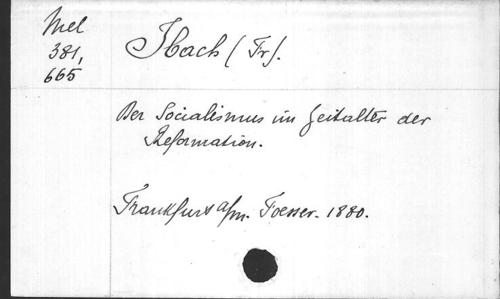 Mel
381,
665
Ibach (Fr).
Der Socialismus im Zeitalter der
Reformation.
Frankfurt a/m. Foesser. 1880.